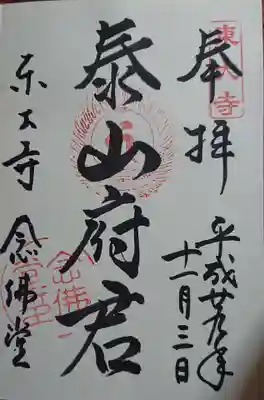 奉拝
東大寺
平成廿九年
十一月三日
泰山府君
東大寺
念佛堂
念佛堂